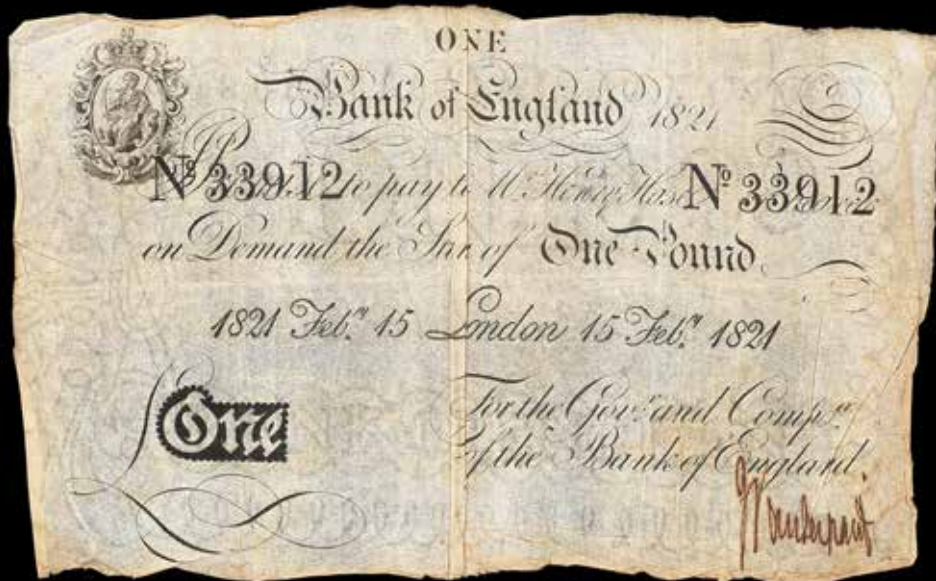 ONE
Bank of England 1821
Nº 33912 to pay to Mr. Henry Hase Nº 33912
on Demand the Sum of One Pound
1821 Feby. 15 London 15 Feby. 1821
£One
For the Govr. and Compa.
of the Bank of England